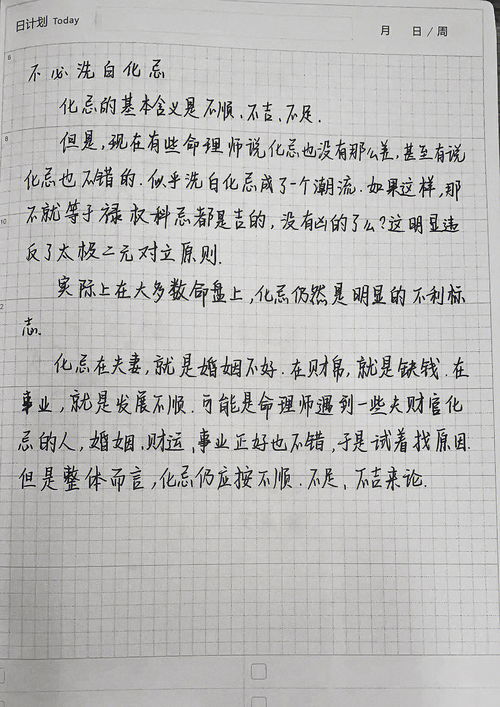 日计划 Today
月 日/周
6
不必洗白化忌
化忌的基本含义是不顺、不吉、不足.
8
但是,现在有些命理师说化忌也没有那么差,甚至有说
化忌也不错的.似乎洗白化忌成了一个潮流.如果这样,那
10
不就等于禄权科忌都是吉的,没有凶的了么?这明显违
反了太极二元对立原则.
实际上在大多数命盘上,化忌仍然是明显的不利标
2
志.
化忌在夫妻,就是婚姻不好.在财帛,就是缺钱.在
事业,就是发展不顺.可能是命理师遇到一些夫财官化
忌的人,婚姻、财运、事业正好也不错,于是试着找原因.
但是整体而言,化忌仍应按不顺.不足、不吉来论.